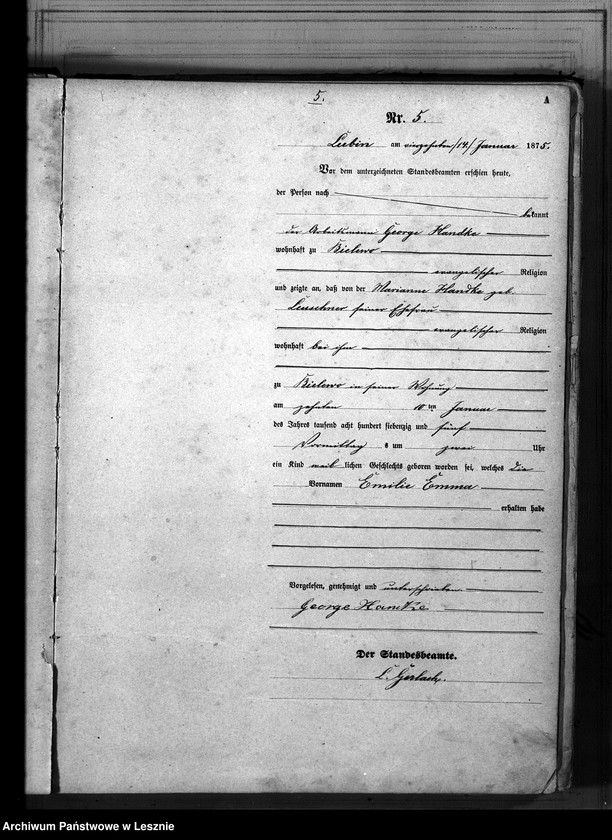 5.
A
Nr. 5.
Lubin am vierzehnten /14./ Januar 1875.
Vor dem unterzeichneten Standesbeamten erschien heute,
der Person nach
bekannt
der Arbeitsmann George Handke
wohnhaft zu Bielewo
evangelischer Religion
und zeigte an, daß von der Marianne Handke geb.
Leuschner seiner Ehefrau
evangelischer Religion
wohnhaft bei ihm
zu Bielewo in seiner Wohnung
am zehnten 10ten Januar
des Jahres tausend acht hundert siebenzig und fünf
Vormittag s um zwei Uhr
ein Kind weiblichen Geschlechts geboren worden sei, welches die
Vornamen Emilie Emma
erhalten habe
Vorgelesen, genehmigt und unterschrieben
George Hantke
Der Standesbeamte.
Gerlach.
Archiwum Państwowe w Lesznie